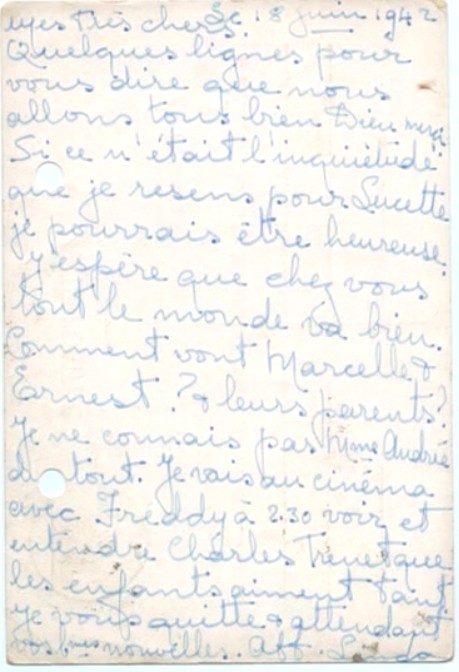 Mes très chers. Le 18 juin 1942
Quelques lignes pour
vous dire que nous
allons tous bien Dieu merci
Si ce n'était l'inquiétude
que je resens pour Lucette
je pourrais être heureuse.
J'espère que chez vous
tout le monde va bien.
Comment vont Marcelle &
Ernest ? & leurs parents?
Je ne connais pas Mme Andrée
du tout. Je vais au cinéma
avec Freddy à 2.30 voir et
entendre Charles Trenet que
les enfants aiment tant.
Je vous quitte & attendant
vos bnes nouvelles. Aff.